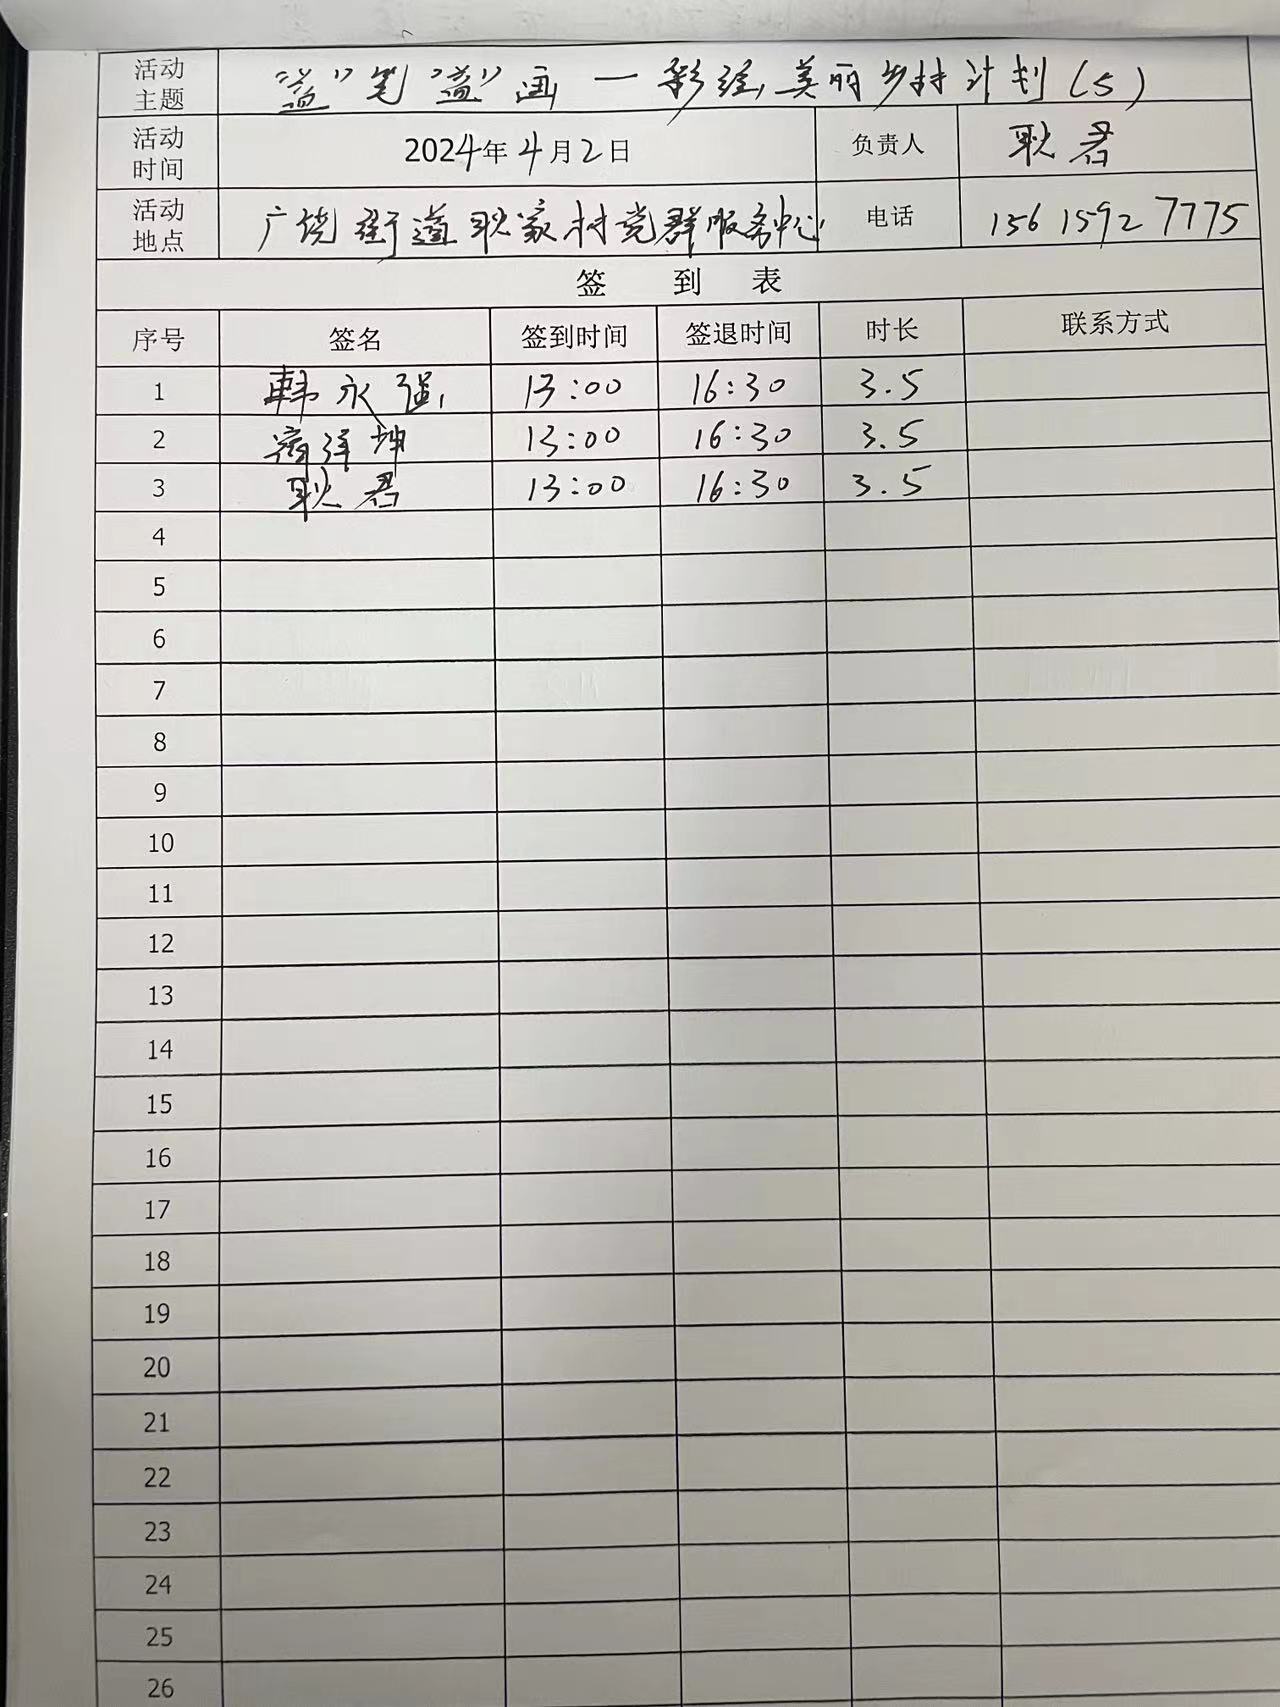 活动主题 “益”笔“益”画一彩绘美丽乡村计划(5)
活动时间 2024年4月2日 负责人 耿君
活动地点 广饶街道耿家村党群服务中心 电话 15615927775
签到表
序号 签名 签到时间 签退时间 时长 联系方式
1 韩永强 13:00 16:30 3.5
2 洋坤 13:00 16:30 3.5
3 耿君 13:00 16:30 3.5
4
5
6
7
8
9
10
11
12
13
14
15
16
17
18
19
20
21
22
23
24
25
26